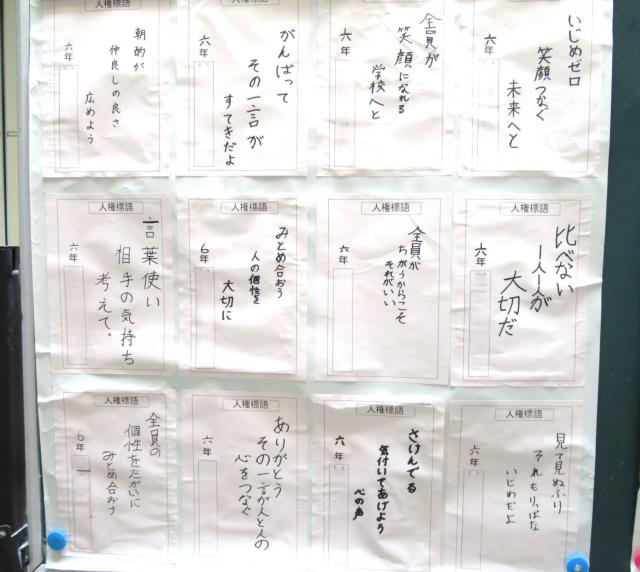 人権標語
いじめゼロ
笑顔つなぐ
未来へと
六年
人権標語
全員が
笑顔になれる
学校へと
六年
人権標語
がんばって
その一言が
すてきだよ
六年
人権標語
朝酌が
仲良しの良さ
広めよう
六年
人権標語
比べない
一人一人が
大切だ
六年
人権標語
全員が
ちがうからこそ
それがいい
六年
人権標語
みとめ合おう
人の個性を
大切に
6年
人権標語
言葉使い
相手の気持ち
考えて。
六年
人権標語
見て見ぬふり
それもりっぱな
いじめだよ
六年
人権標語
さけんでる
気付いてあげよう
心の声
六年
人権標語
ありがとう
その一言が人と人の
心をつなぐ
六年
人権標語
全員の
個性をたがいに
みとめ合おう
6年